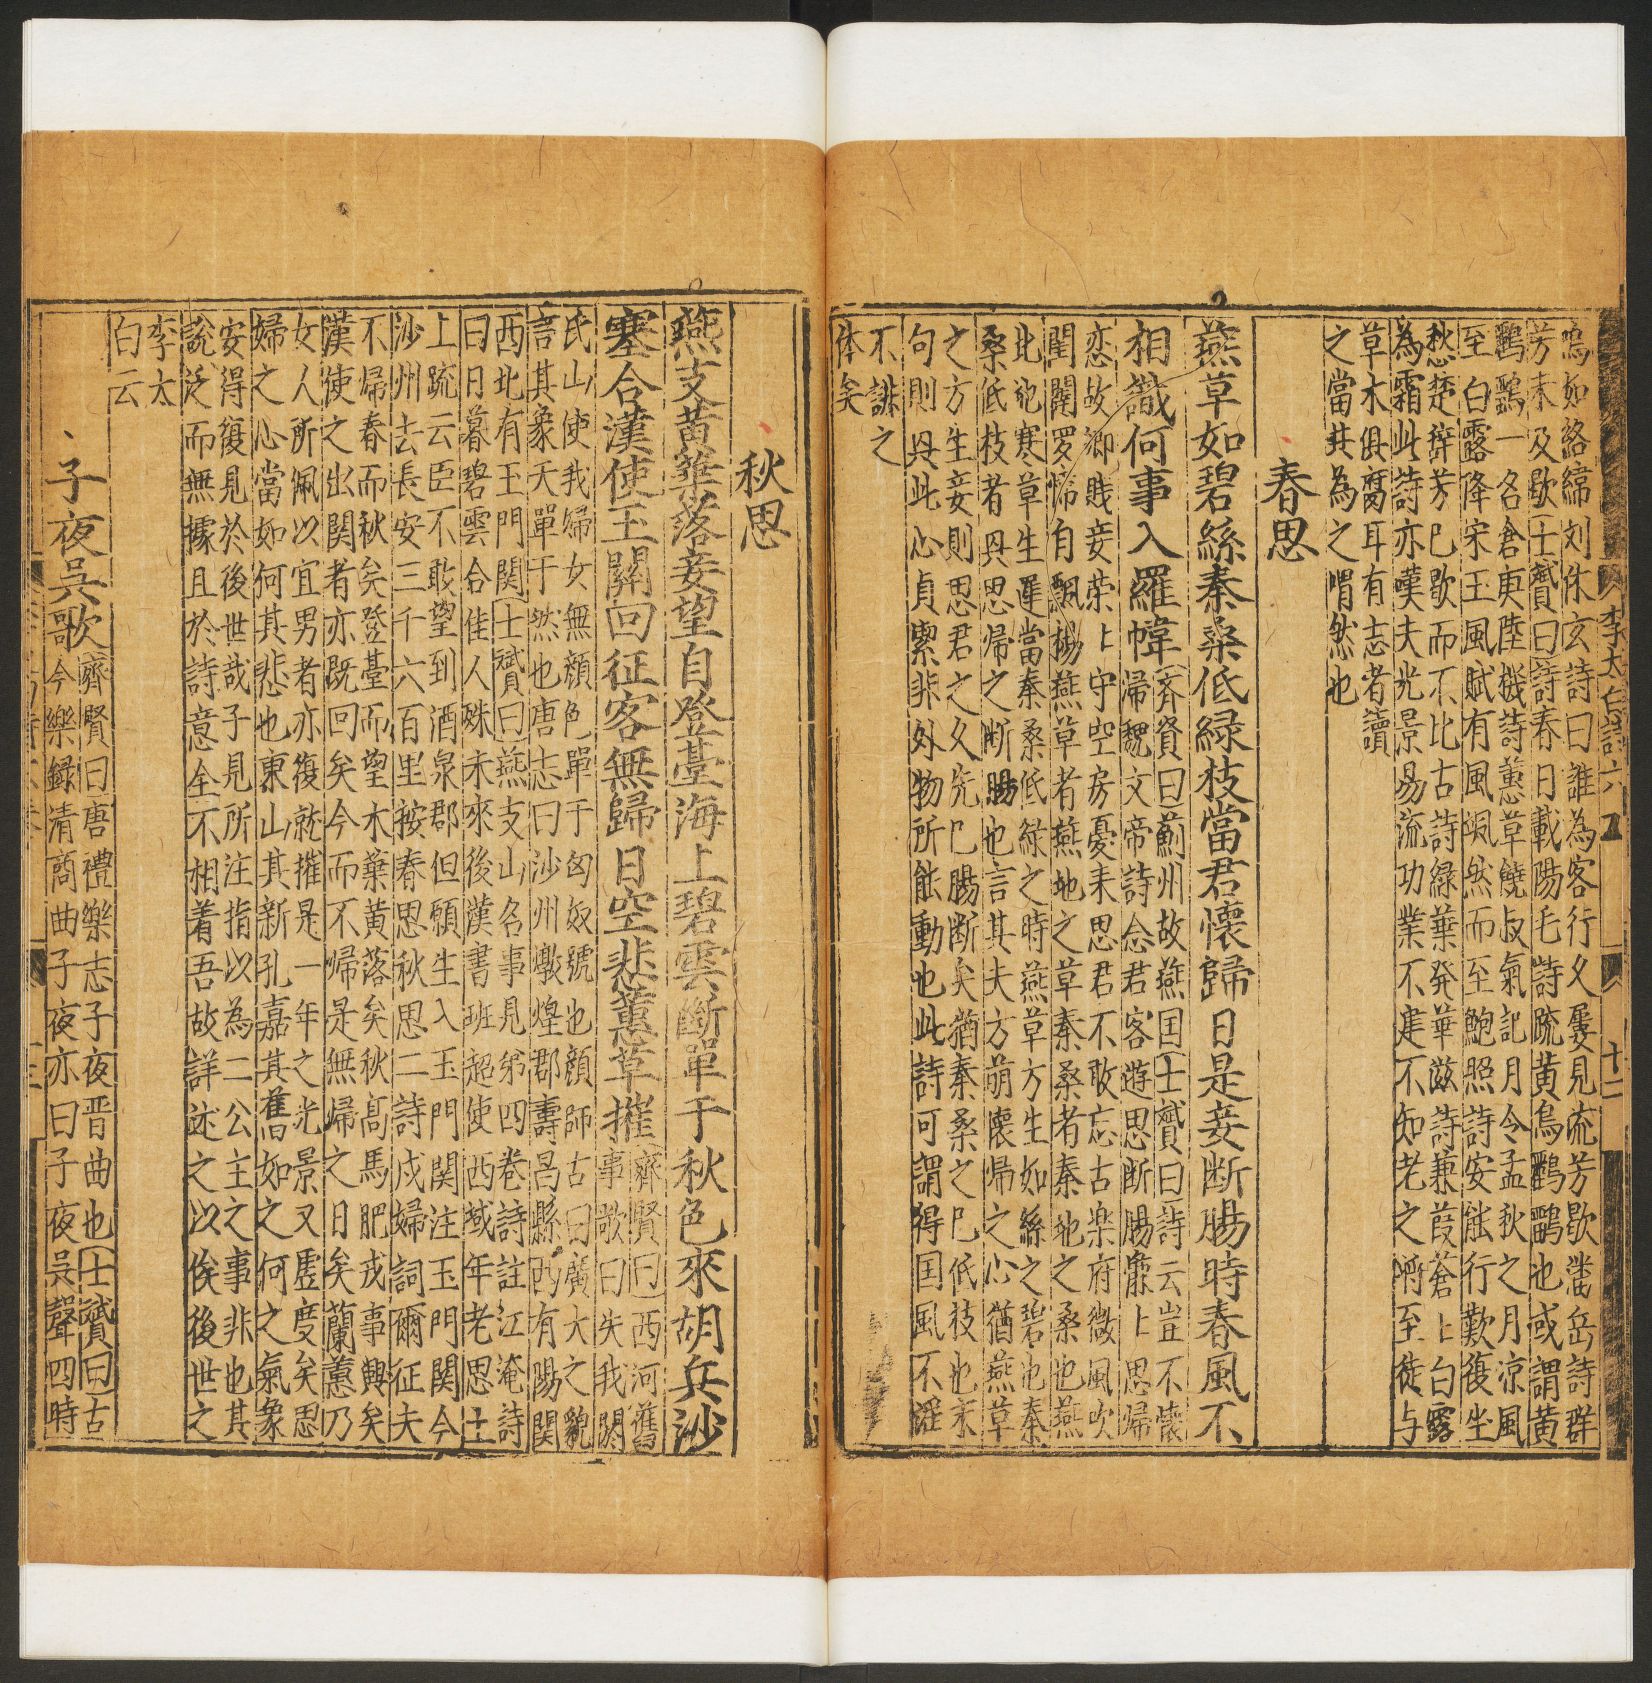 鳴如絡緯刘休玄詩曰誰為客行久屢見流芳歇潘岳詩群
芳未及歇士贇曰詩春日載陽毛詩疏黄鳥鸝鸝也或謂黄
鸝鶹一名倉庚陸機詩蕙草饒淑氣記月令孟秋之月凉風
至白露降宋玉風賦有風颯然而至鮑照詩安能行歎復坐
愁楚辞芳已歇而不比古詩緑葉発華滋詩兼葭蒼〻白露
為霜此詩亦嘆夫光景易流功業不建不知老之將至徒与
草木俱腐耳有志者讀
之當共為之喟然也
春思
燕草如碧絲秦桑低緑枝當君懷歸日是妾断腸時春風不
相識何事入羅幃
斉賢曰薊州故燕国士贇曰詩云豈不懷
帰魏文帝詩念君客遊思断腸慊〻思帰
恋故鄉賤妾荣〻守空房憂来思君不敢忘古楽府微風吹
閨闥罗帷自飄揚燕草者燕地之草秦桑者秦地之桑也燕
北地寒草生遲當秦桑低緑之時燕草方生如絲之碧也秦
桑低枝者興思帰之断腸也言其夫方萌懷帰之心猶燕草
之方生妾則思君之久先已腸断矣猶秦桑之已低枝也末
句則興此心貞潔非外物所能動也此詩可謂得国風不淫
不誹之
体矣
李太白詩六 十二
秋思
燕支黄葉落妾望自登臺海上碧雲斷單于秋色來胡兵沙
塞合漢使玉關回征客無歸日空悲蕙草摧
齊賢曰西河舊
事歌曰失我閼
氏山使我婦女無顔色單于匈奴號也顔師古曰廣大之貌
言其象天單于然也唐志曰沙州燉煌郡壽昌縣西有陽関
西北有玉門関士贇曰燕支山名事見第四卷詩註江淹詩
曰日暮碧雲合佳人殊未來後漢書班超使西域年老思土
上疏云臣不敢望到酒泉郡但願生入玉門関注玉門関今
沙州去長安三千六百里按春思秋思二詩戍婦詞爾征夫
不帰春而秋矣登臺而望木葉黄落矣秋髙馬肥戎事興矣
漢使之出関者亦既回矣今而不帰是無帰之日矣蘭蕙乃
女人所佩以宜男者亦復就摧是一年之光景又虚度矣思
婦之心當如何其悲也東山其新孔嘉其舊如之何之氣象
安得復見於後世哉子見所注指以為二公主之事非也其
說泛而無據且於詩意全不相着吾故詳述之以俟後世之
李太
白云
子夜吳歌
齊賢曰唐禮樂志子夜晋曲也士贇曰古
今樂録清商曲子夜亦曰子夜吳聲四時